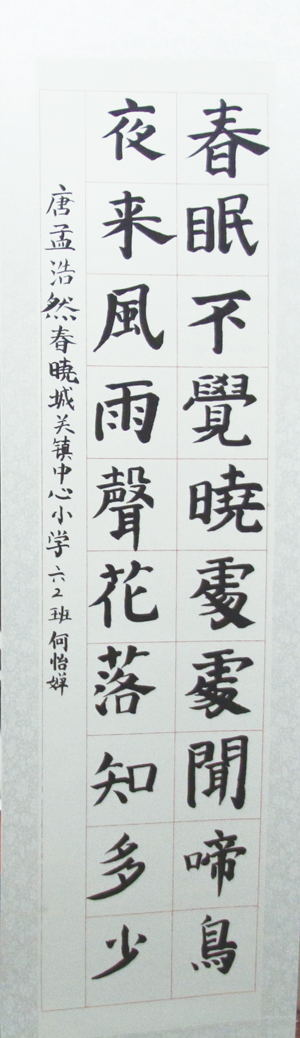 春眠不覺曉處處聞啼鳥
夜来風雨聲花落知多少
唐孟浩然春曉城关镇中心小学六2班何怡婵